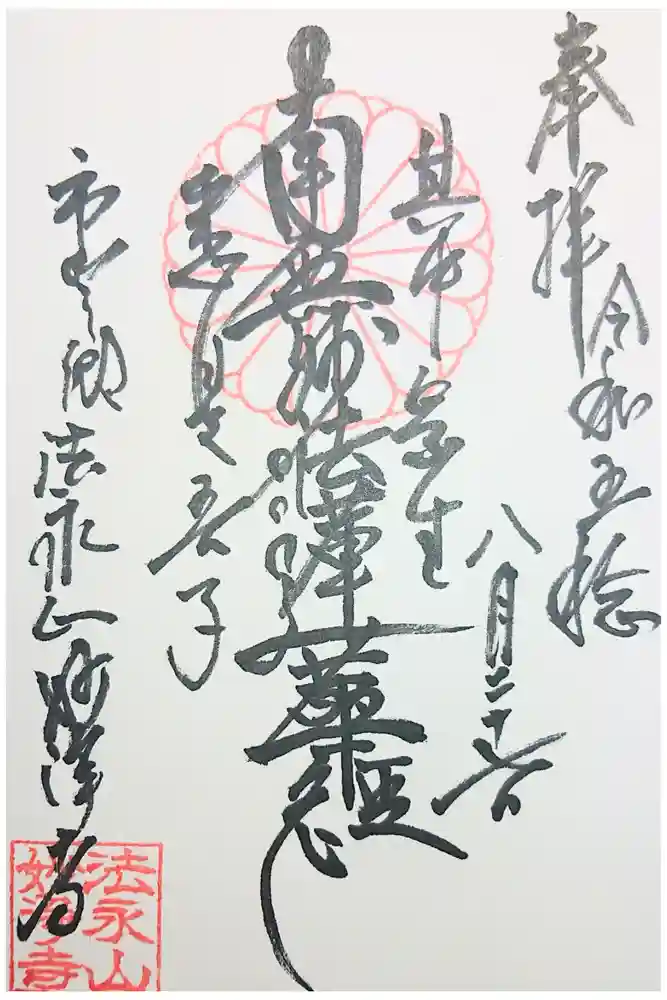 奉拝
令和五稔
八月二十
其中衆生
南無妙法蓮華經
悉是吾子
市之郷 法永山 妙浄寺
法永山
妙浄寺